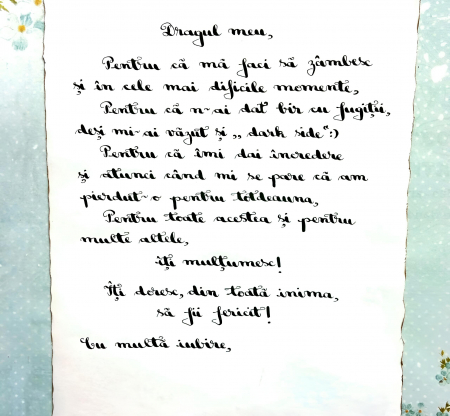 Dragul meu,
Pentru că mă faci să zâmbesc
și în cele mai dificile momente,
Pentru că n-ai dat bir cu fugiții,
deși mi-ai văzut și „ dark side":)
Pentru că îmi dai încredere
și atunci când mi se pare că am
pierdut-o pentru totdeauna,
Pentru toate acestea și pentru
multe altele,
îți mulțumesc!
Îți doresc, din toată inima,
să fii fericit!
Cu multă iubire,